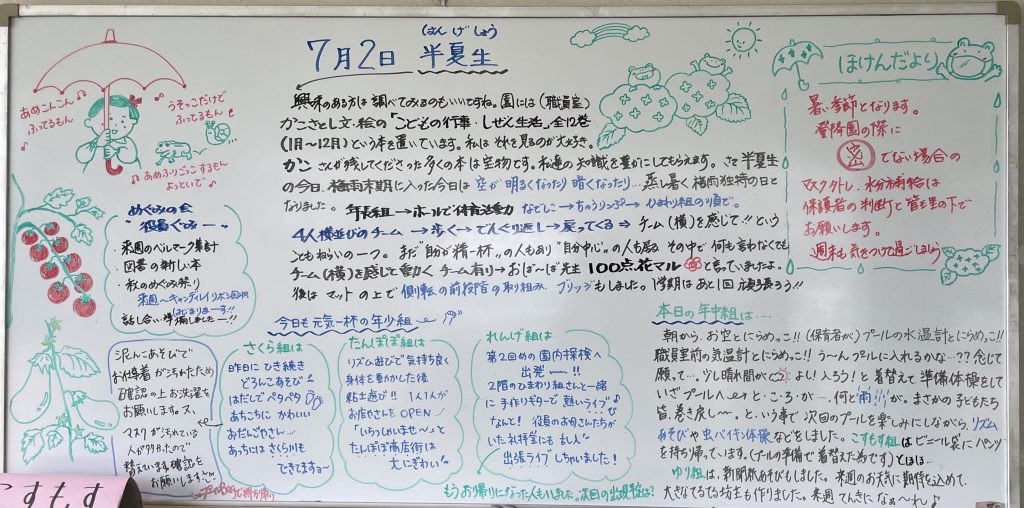 はんげしょう
7月2日 半夏生
興味のある方は調べてみるのもいいですね。園には(職員室)
かこさとし文・絵の「こどもの行事・しぜん生活」全12巻
(1月〜12月)という本を置いています。私はそれを見るのが大好き。
さんが残してくださった多くの本は宝物です。私達の知識を豊かにしてもらえます。さて半夏生
の今日、梅雨末期に入った今日は空が明るくなったり暗くなったり…蒸し暑く梅雨独特の日と
なりました。年長組→ホールで体育活動 なでしこ→ちゅうりっぷ→ひまわり組の順で。
4人横並びのチーム→歩く→でんぐり返し→戻ってくる→チーム(横)を感じて!!という
こともねらいの一つ。まだ自分が精一杯〟の人もあり〝自分中心〟の人も居る その中で何も言わなくても
チーム(横)を感じて動くチーム有り→おば〜ば先生 100点花マル と言っていましたよ。
後は マットの上で側転の前段階の取り組み ブリッジもしました。1学期はあと1回 頑張ろう!!
あめこんこん♪
ふってるもん
うそっこだけど
ふってるもん
♪あめふりごっこ するもん
よっといで♪
めぐみの会
役員ぐみー
・来週のベルマーク集計
・図書の新しい本
・秋のめぐみ祭り
来週〜キャンディレイ リボン回収
はじまりまーす!!
話し合い・準備しましたー!!
ほけんだより
暑い季節となります。
登降園の際に
密 でない場合の
マスク外し、水分補給は
保護者の判断と管理の下で
お願いします。
週末も気をつけて過ごしましょう
今日も元気一杯の年少組
泥んこあそびで
外作業着が汚れたため
確認の上お洗濯を
お願いします。
マスクが汚れている
人が多かったので
替えています。確認を
お願いします
さくら組は
昨日にひき続き
どろんこあそび
はだしでペタペタ
あちこちに かわいい
おだんごやさん…
あっちはさくらんぼも
できてますョ〜
たんぽぽ組は
リズム遊びで気持ち良く
身体を動かした後
粘土遊び!! 1人1人が
お店やさんを OPEN…
「いらっしゃいませ〜」と
たんぽぽ商店街は
大にぎわい
れんげ組は
第2回めの園内探検へ
出発〜!!
2階のひまわり組さんと一緒
に手作りギターで熱いライブ♪
なんと! 役員のお母さんたちが
いた礼拝堂にも乱入
出張ライブしちゃいました!
もうお帰りになった人もいました。次回の出現程は?
本日の年中組は…
朝から、お空とにらめっこ!! (保育者が)プールの水温計とにらめっこ!!
職員室前の気温計とにらめっこ!! う〜んプールに入れるかな…?? 念じて
願って…。少し晴れ間が よし!入ろう!と着替えて準備体操をして
いざプールへ と・こ・ろ・が…、何と雨が。まさかの子どもたち
皆、巻き戻し〜。という事で次回のプールを楽しみにしながら、リズム
あそびや虫バイキン体操などをしました。こすもす組はビニール袋にパンツ
を持ち帰っています。(プールの準備で着替えた為です)とほほ…
ゆり組は、新聞紙あそびもしました。来週のお天気に期待を込めて、
大きなてるてる坊主も作りました。来週 てんきに なぁ〜れ♪
こすもす